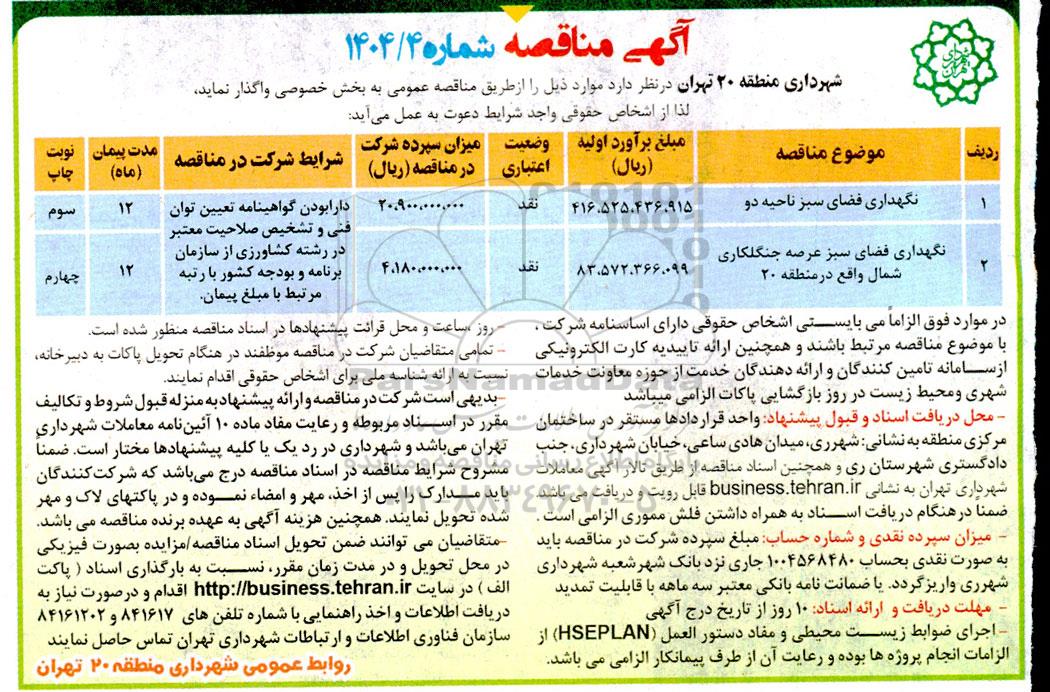 آگهی مناقصه شماره ۱۴۰۴/۴
شهرداری منطقه ۲۰ تهران درنظر دارد موارد ذیل را ازطریق مناقصه عمومی به بخش خصوصی واگذار نماید،
لذا از اشخاص حقوقی واجد شرایط دعوت به عمل می‌آید:
ردیف موضوع مناقصه مبلغ برآورد اولیه (ریال) وضعیت اعتباری میزان سپرده شرکت در مناقصه (ریال) شرایط شرکت در مناقصه مدت پیمان (ماه) نوبت چاپ
۱ نگهداری فضای سبز ناحیه دو ۴۱۶.۵۲۵.۴۳۶.۹۱۵ نقد ۲۰.۹۰۰.۰۰۰.۰۰۰ ۱۲ سوم
۲ نگهداری فضای سبز عرصه جنگلکاری شمال واقع درمنطقه ۲۰ ۸۳.۵۷۲.۳۶۶.۰۹۹ نقد ۴.۱۸۰.۰۰۰.۰۰۰ ۱۲ چهارم
دارابودن گواهینامه تعیین توان
فنی و تشخیص صلاحیت معتبر
در رشته کشاورزی از سازمان
برنامه و بودجه کشور با رتبه
مرتبط با مبلغ پیمان.
در موارد فوق الزاماً می بایستی اشخاص حقوقی دارای اساسنامه شرکت ،
با موضوع مناقصه مرتبط باشند و همچنین ارائه تاییدیه کارت الکترونیکی
ازسامانه تامین کنندگان و ارائه دهندگان خدمت از حوزه معاونت خدمات
شهری ومحیط زیست در روز بازگشایی پاکات الزامی میباشد
- محل دریافت اسناد و قبول پیشنهاد: واحد قراردادها مستقر در ساختمان
مرکزی منطقه به نشانی: شهرری، میدان هادی ساعی، خیابان شهرداری، جنب
دادگستری شهرستان ری و همچنین اسناد مناقصه از طریق تالار آگهی معاملات
شهرداری تهران به نشانی business.tehran.ir قابل رویت و دریافت می باشد.
ضمناً درهنگام دریافت اسناد به همراه داشتن فلش مموری الزامی است .
- میزان سپرده نقدی و شماره حساب: مبلغ سپرده شرکت در مناقصه باید
به صورت نقدی بحساب ۱۰۰۴۵۶۸۴۸۰ جاری نزد بانک شهرشعبه شهرداری
شهرری واریزگردد. یا ضمانت نامه بانکی معتبر سه ماهه با قابلیت تمدید
- مهلت دریافت و ارائه اسناد: ۱۰ روز از تاریخ درج آگهی
- اجرای ضوابط زیست محیطی و مفاد دستور العمل (HSEPLAN) از
الزامات انجام پروژه ها بوده و رعایت آن از طرف پیمانکار الزامی می باشد.
- روز ،ساعت و محل قرائت پیشنهادها در اسناد مناقصه منظور شده است.
- تمامی متقاضیان شرکت در مناقصه موظفند در هنگام تحویل پاکات به دبیرخانه،
نسبت به ارائه شناسه ملی برای اشخاص حقوقی اقدام نمایند.
-بدیهی است شرکت در مناقصه و ارائه پیشنهاد به منزله قبول شروط و تکالیف
مقرر در اسناد مربوطه و رعایت مفاد ماده ۱۰ آئین‌نامه معاملات شهرداری
تهران می‌باشد و شهرداری در رد یک یا کلیه پیشنهادها مختار است. ضمناً
شروح شرایط مناقصه در اسناد مناقصه درج می‌باشد که شرکت‌کنندگان
باید مدارک را پس از اخذ، مهر و امضاء نموده و در پاکتهای لاک و مهر
شده تحویل نمایند. همچنین هزینه آگهی به عهده برنده مناقصه می باشد.
-متقاضیان می توانند ضمن تحویل اسناد مناقصه/مزایده بصورت فیزیکی
در محل تحویل و در مدت زمان مقرر، نسبت به بارگذاری اسناد ( پاکت
الف ) در سایت http://business.tehran.ir اقدام و درصورت نیاز به
دریافت اطلاعات و اخذ راهنمایی با شماره تلفن های ۸۴۱۶۱۷ و ۸۴۱۶۱۲۰۲
سازمان فناوری اطلاعات و ارتباطات شهرداری تهران تماس حاصل نمایند
روابط عمومی شهرداری منطقه ۲۰ تهران
ParsNamadData